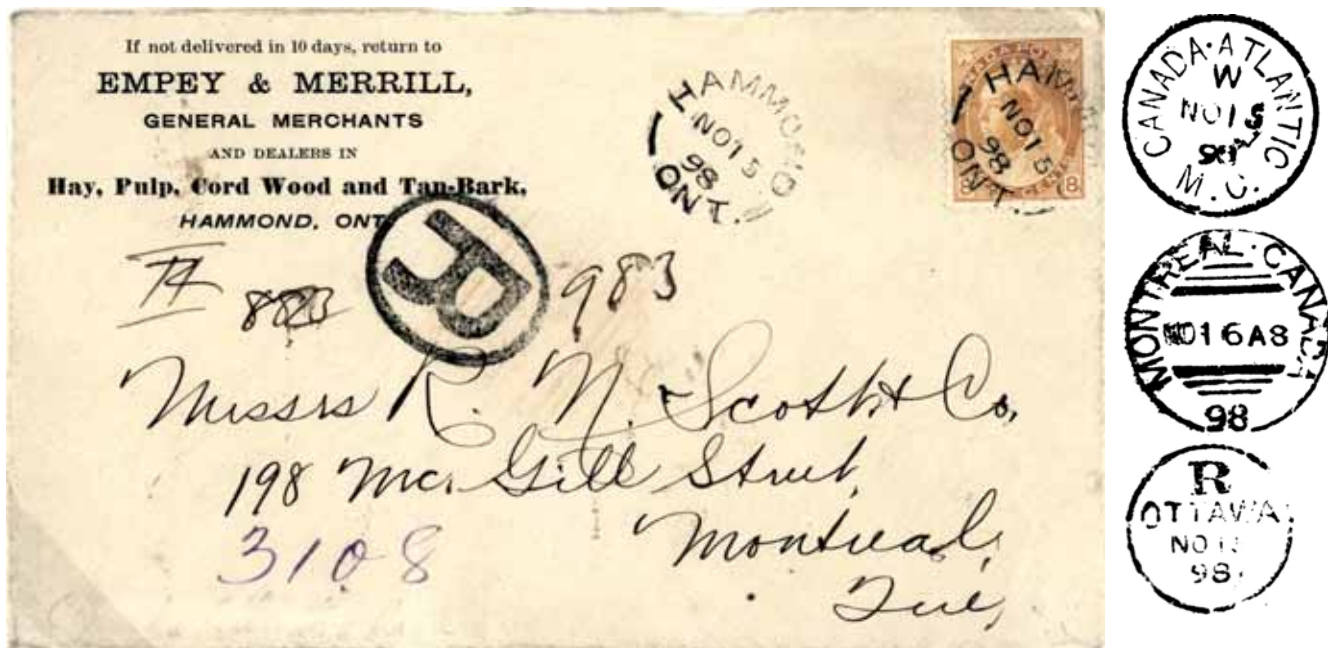 If not delivered in 10 days, return to
EMPEY & MERRILL,
GENERAL MERCHANTS
AND DEALERS IN
Hay, Pulp, Cord Wood and Tan-Bark,
HAMMOND, ONT
HAMMOND
NO 15
98
ONT.
HAM
NO 15
98
ONT.
8 8
R
983
Messrs R. N. Scott & Co,
198 McGill Street,
Montreal,
Que,
3108
CANADA·ATLANTIC
W
NO 15
98
M.C.
MONTREAL·CANADA
NO 16 A8
98
R
OTTAWA
NO
98